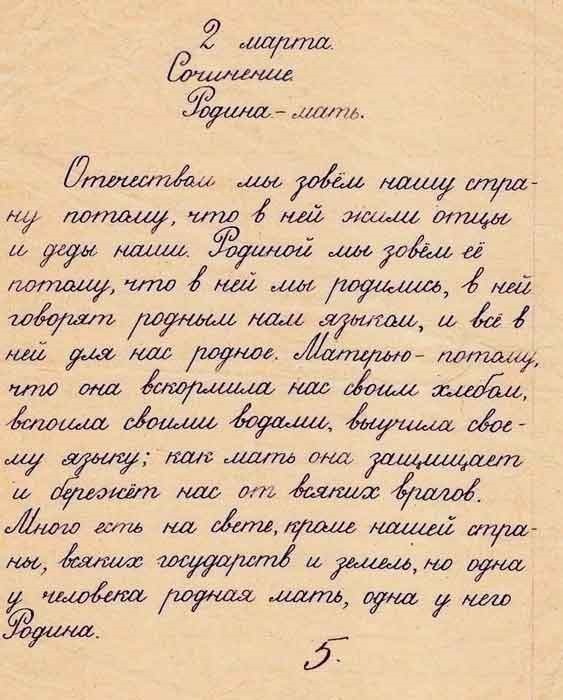 2 марта.
Сочинение.
Родина - мать.
Отечеством мы зовём нашу стра-
ну потому, что в ней жили отцы
и деды наши. Родиной мы зовём её
потому, что в ней мы родились, в ней
говорят родным нам языком, и всё в
ней для нас родное. Матерью - потому,
что она вскормила нас своим хлебом,
вспоила своими водами, выучила свое-
му языку; как мать она защищает
и бережёт нас от всяких врагов.
Много есть на свете, кроме нашей стра-
ны, всяких государств и земель, но одна
у человека родная мать, одна у него
Родина.
5.